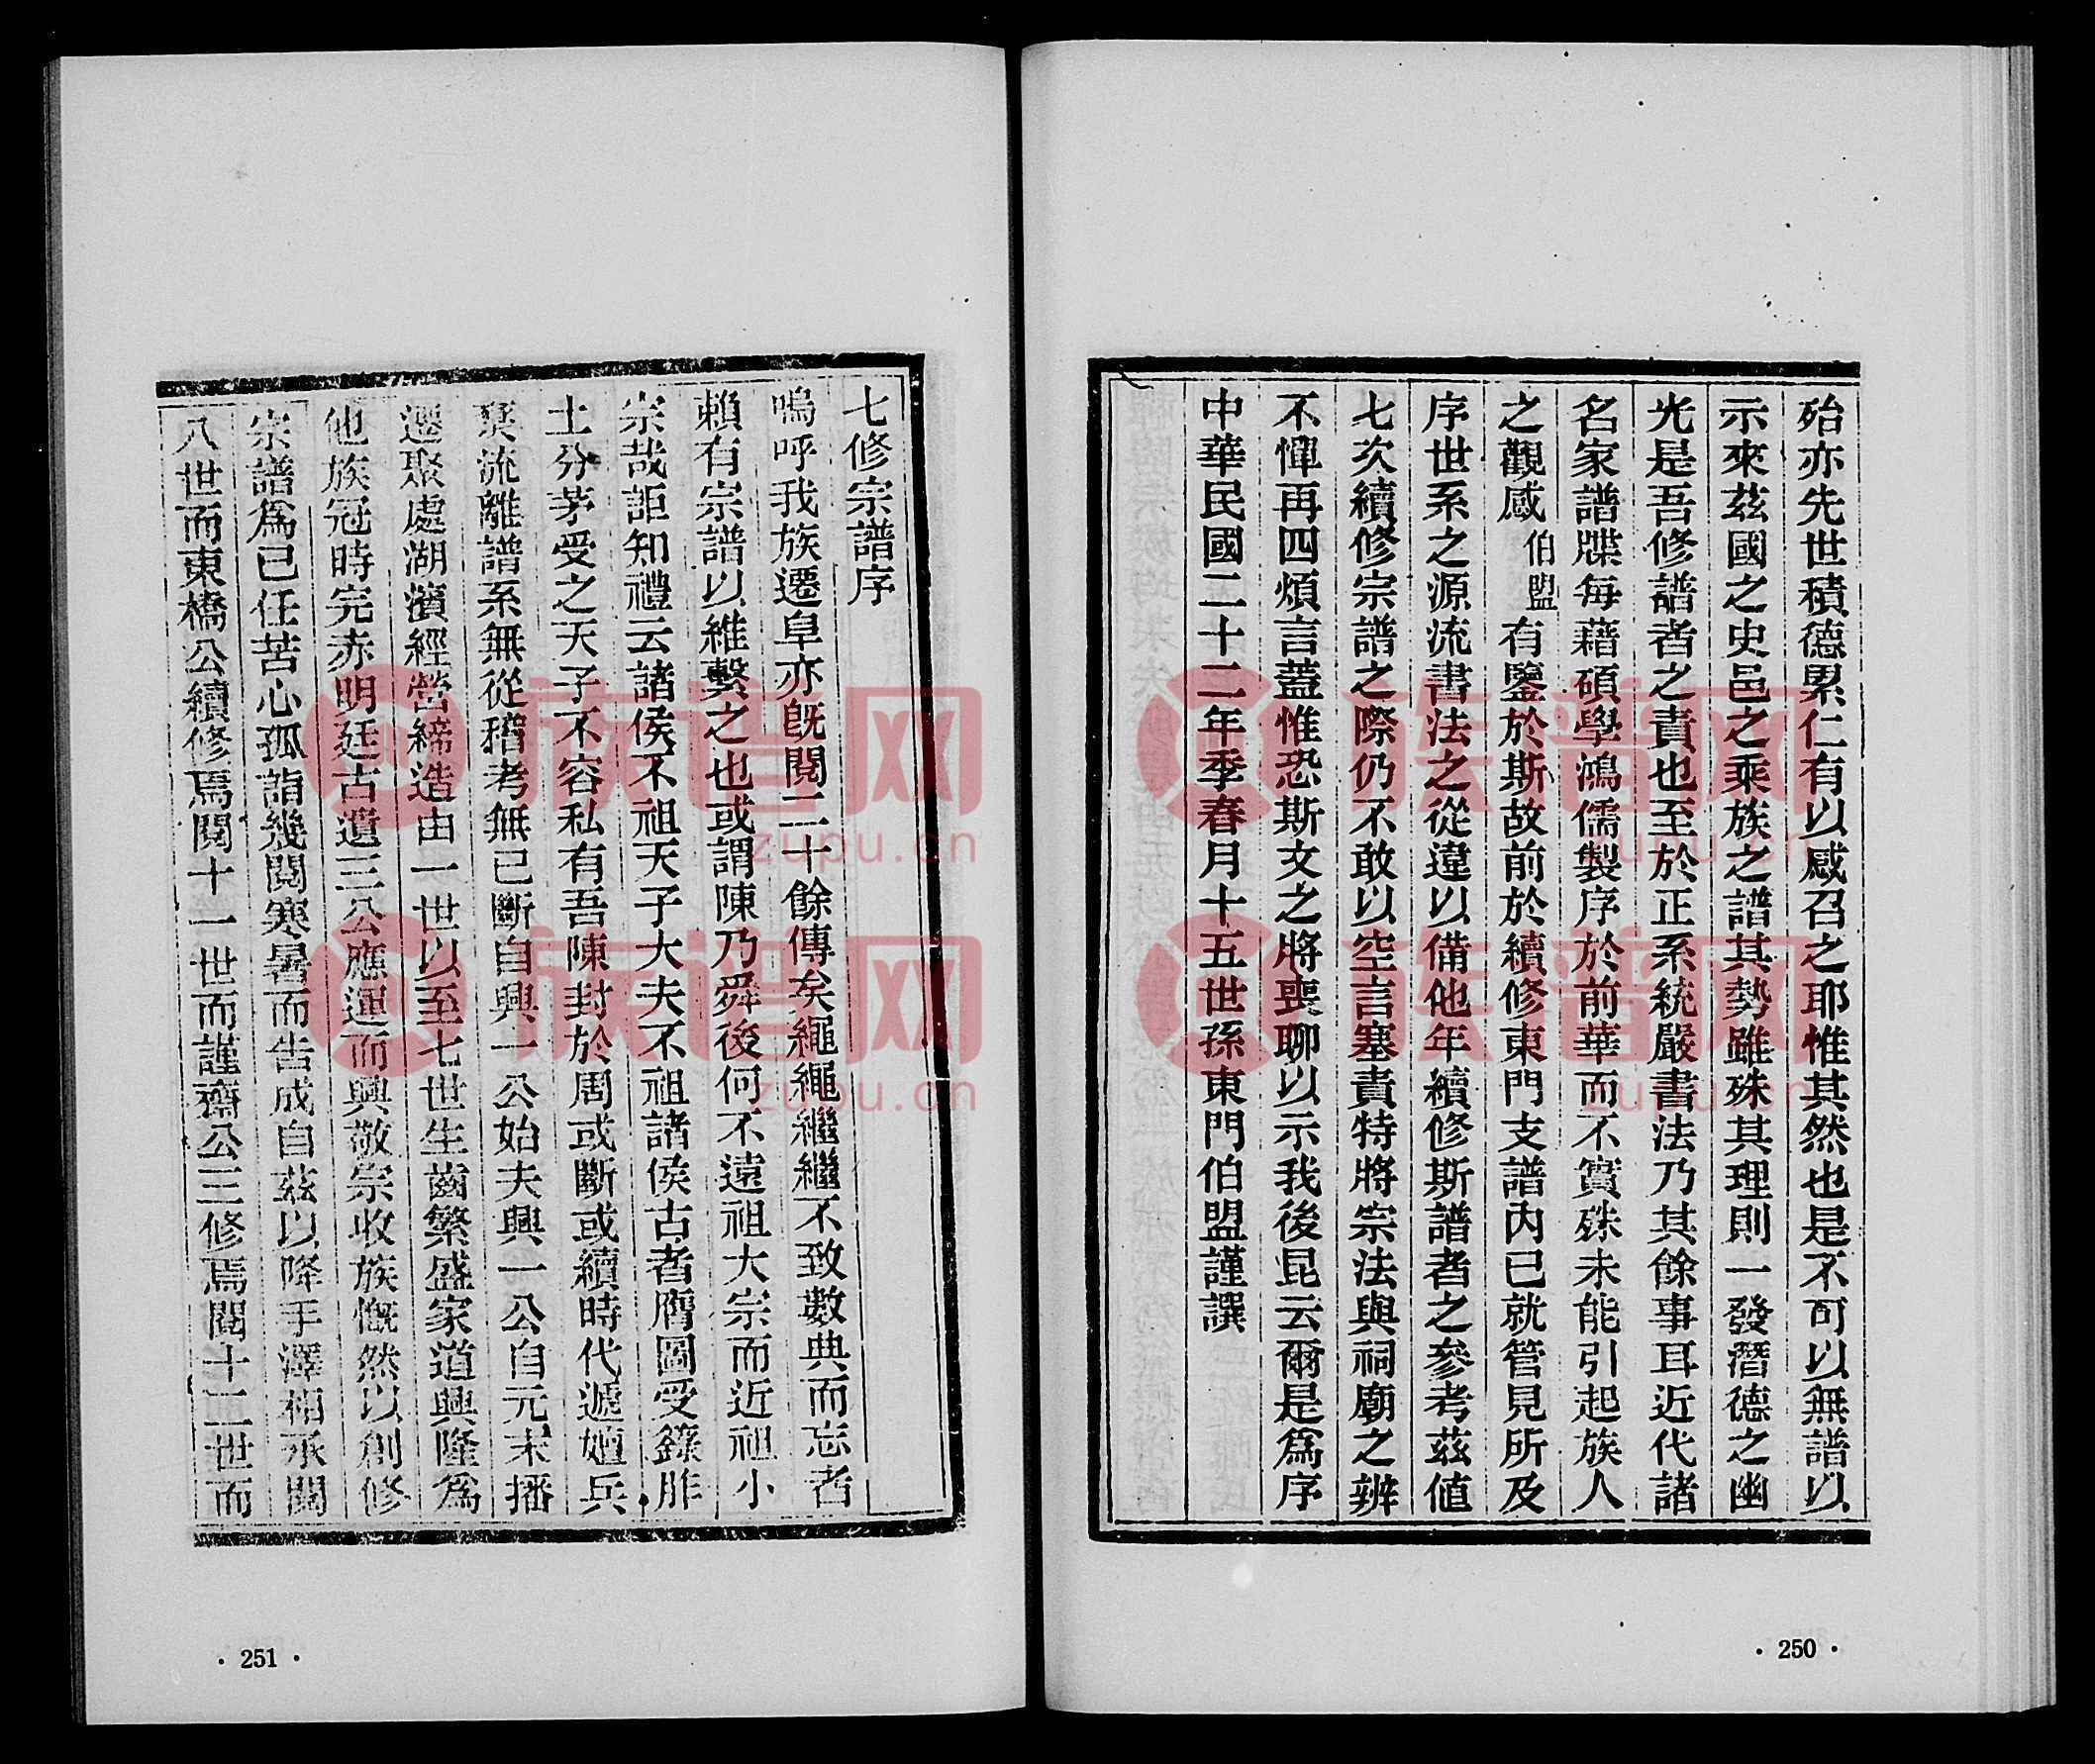 殆亦先世積德累仁有以感召之耶惟其然也是不可以無譜以
示來茲國之史邑之乘族之譜其勢雖殊其理則一發潛德之幽
光是吾修譜者之責也至於正系統嚴書法乃其餘事耳近代諸
名家譜牒每藉碩學鴻儒製序於前華而不實殊未能引起族人
之觀感伯盟有鑒於斯故前於續修東門支譜內已就管見所及
序世系之源流書法之從違以備他年續修斯譜者之參考茲值
七次續修宗譜之際仍不敢以空言塞責特將宗法與祠廟之辨
不憚再四煩言蓋惟恐斯文之將喪聊以示我後昆云爾是為序
中華民國二十二年季春月十五世孫東門伯盟謹譔
· 250 ·
七修宗譜序
嗚呼我族遷阜亦既閱二十餘傳矣繩繩繼繼不致數典而忘者
賴有宗譜以維繫之也或謂陳乃舜後何不遠祖大宗而近祖小
宗哉詎知禮云諸侯不祖天子大夫不祖諸侯古者膺圖受籙胙
土分茅受之天子不容私有吾陳封於周或斷或續時代遞嬗兵
燹流離譜系無從稽考無已斷自興一公始夫興一公自元末播
遷聚處湖濱經營締造由一世以至七世生齒繁盛家道興隆為
他族冠時完赤明廷古遺三公應運而興敬宗收族慨然以創修
宗譜為已任苦心孤詣幾閱寒暑而告成自茲以降手澤相承閱
八世而東橋公續修焉閱十一世而謹齋公三修焉閱十二世而
· 251 ·
族谱网
zupu.cn
族谱网
zupu.cn
族谱网
zupu.cn
族谱网
zupu.cn